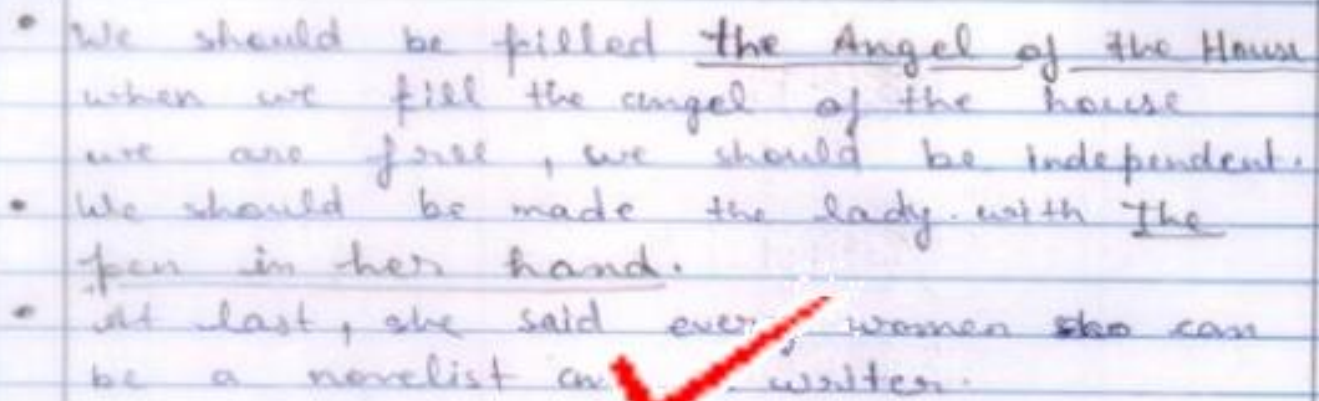 We should be filled the Angel of the House
when we fill the angel of the house
we are free, we should be independent.
We should be made the lady with the
pen in her hand.
At last, she said women can
be a novelist writer.